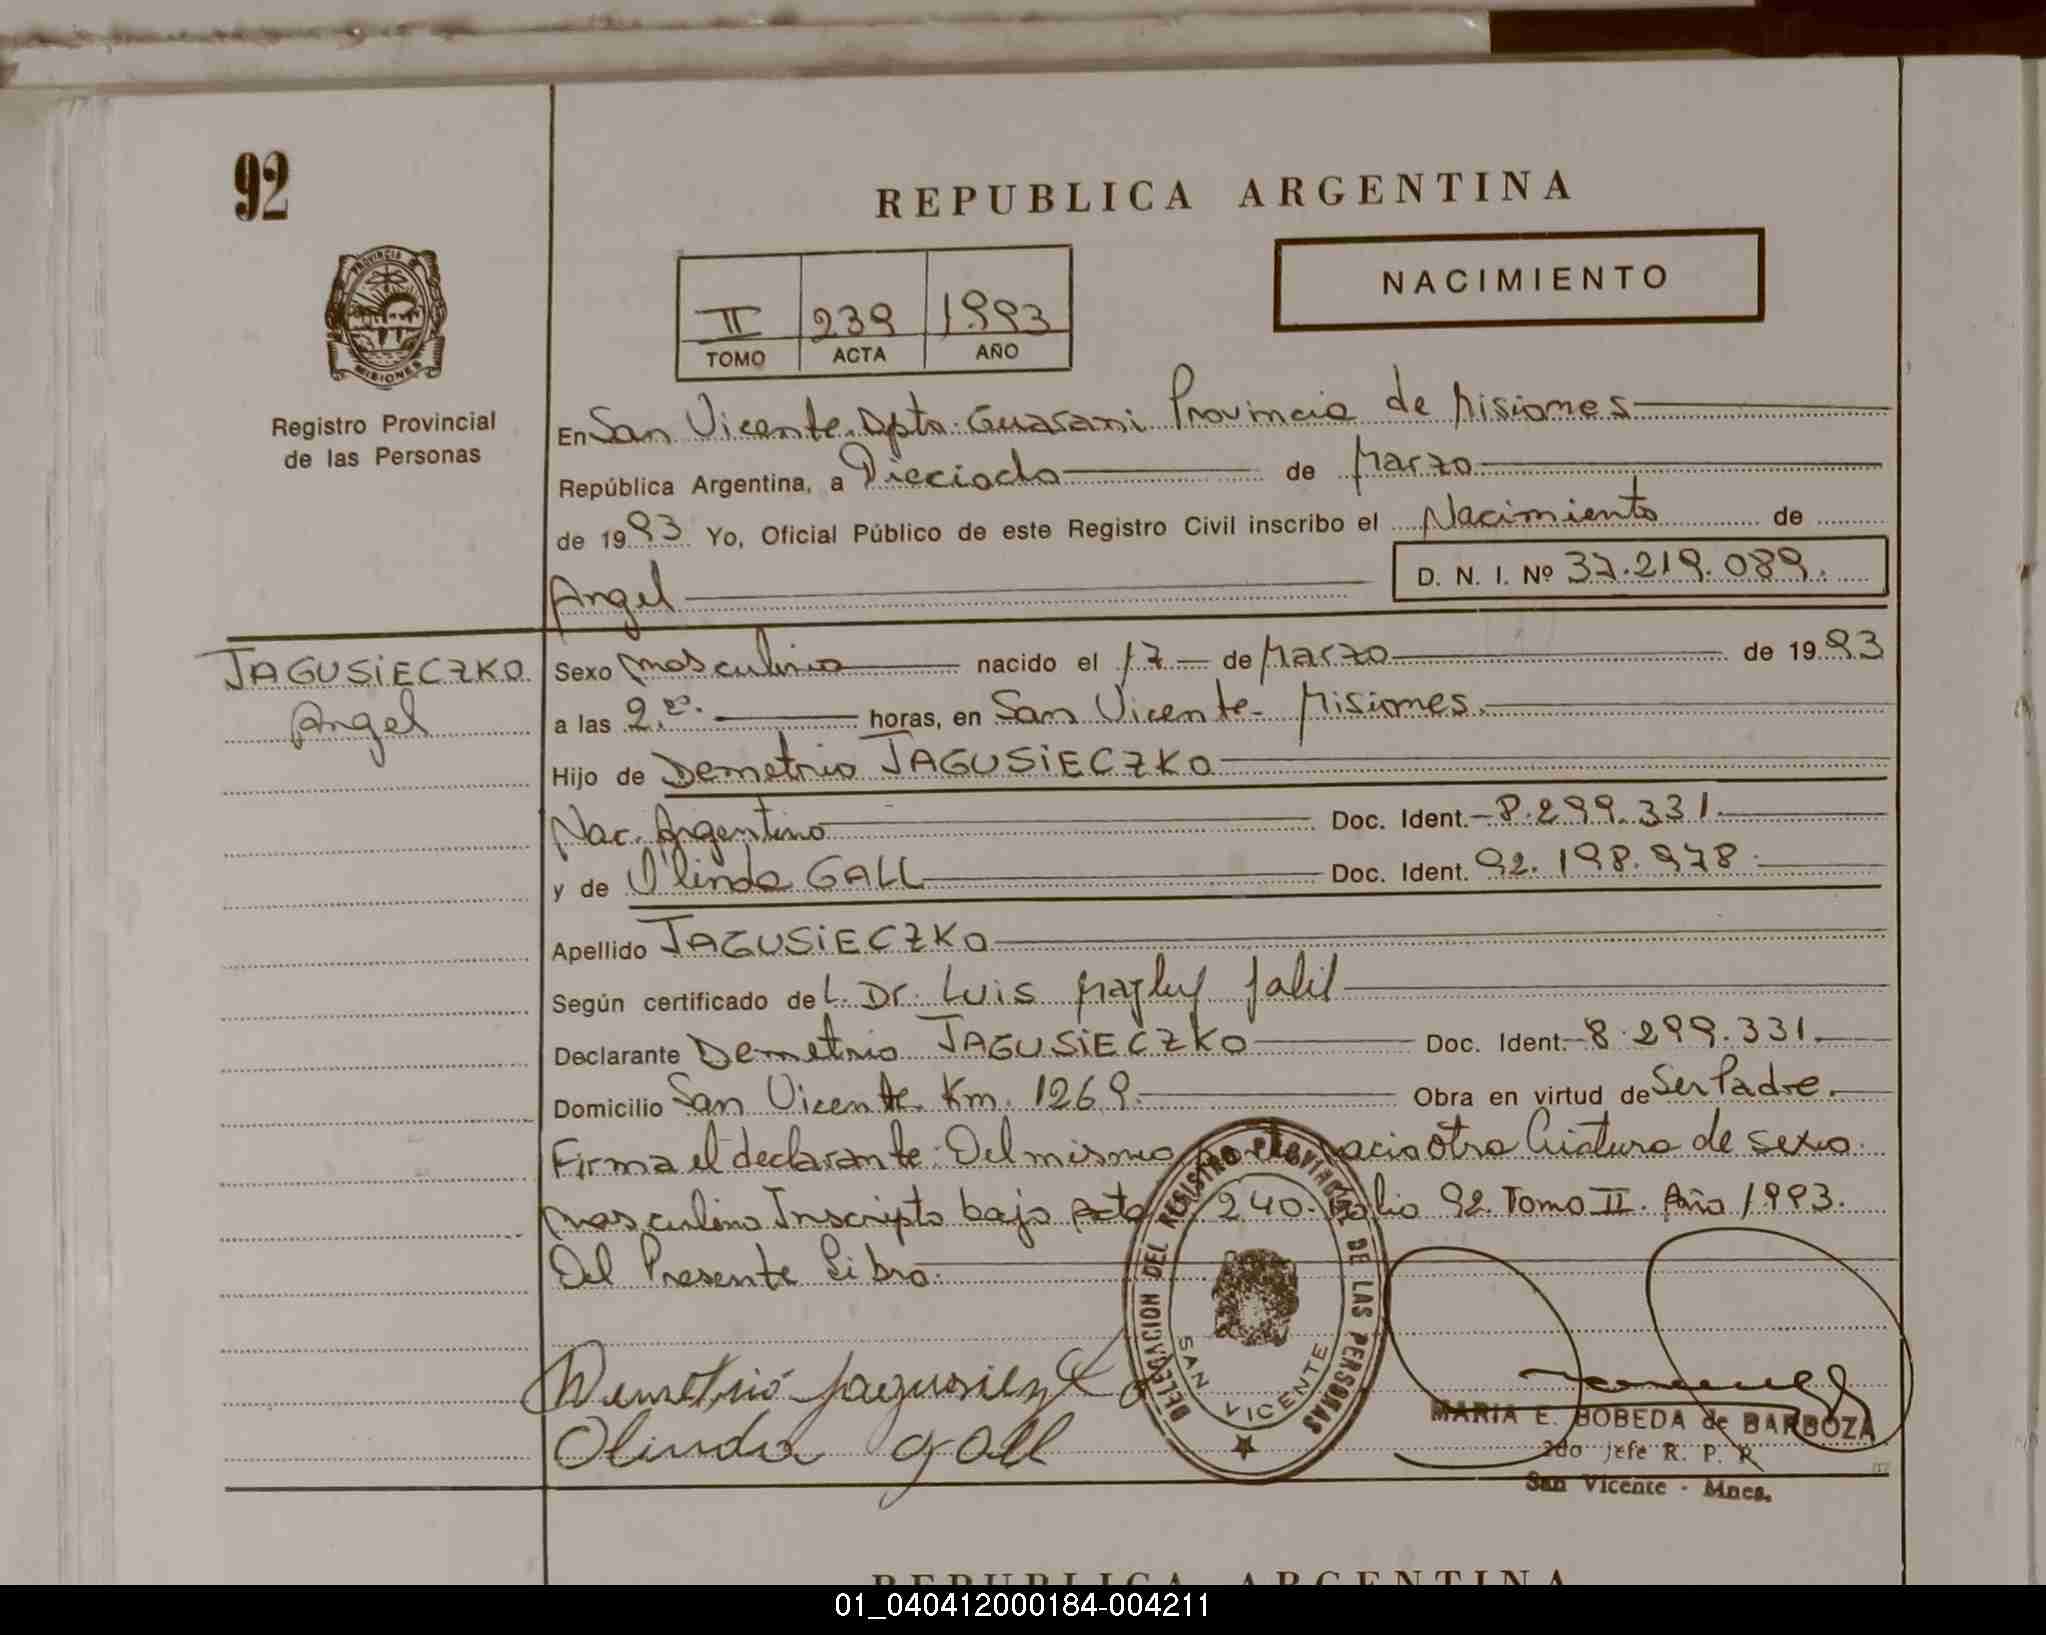 92
REPUBLICA ARGENTINA
NACIMIENTO
II 239 1993
TOMO ACTA AÑO
PROVINCIA DE
MISIONES
Registro Provincial
de las Personas
En San Vicente Dpto. Guarani Provincia de Misiones
República Argentina, a Dieciocho de Marzo
de 1993 Yo, Oficial Público de este Registro Civil inscribo el Nacimiento de
Angel D. N. I. Nº 37.219.089.
JAGUSiECZKO
Angel
Sexo masculino nacido el 17 de Marzo de 1993
a las 2. horas, en San Vicente - Misiones.
Hijo de Demetrio JAGUSiECZKO
Nac. Argentino Doc. Ident. 8.299.331.
y de Olinda GALL Doc. Ident. 92.198.978.
Apellido JAGUSiECZKO
Según certificado del. Dr. Luis Jalil
Declarante Demetrio JAGUSiECZKO Doc. Ident. 8.299.331.
Domicilio San Vicente Km. 1269. Obra en virtud de Ser Padre.
Firma el declarante. Del mismo parto nacio otra Criatura de sexo
masculino Inscripto bajo Acta 240. Folio 92. Tomo II. Año 1993.
Del Presente Libro.
DELEGACION DEL REGISTRO PROVINCIAL DE LAS PERSONAS
SAN VICENTE
Demetrio Jagusieczko
Olinda Gall
MARIA E. BOBEDA de BARBOZA
2do Jefe R. P. R
San Vicente - Mnes.
REPUBLICA ARGENTINA
01_040412000184-004211